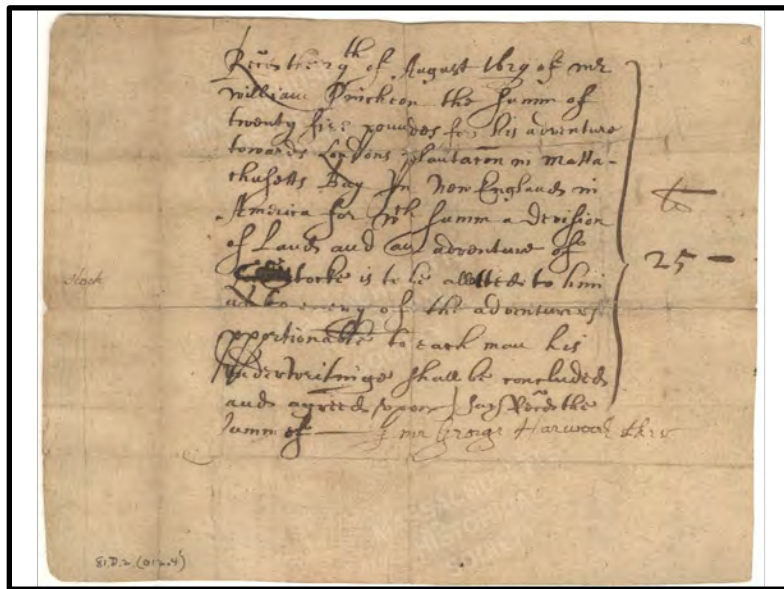 Rec̃ the 29th of August 1629 of mr
William Pincheon the Summ of
twenty five poundes for his adventure
towards Londons plantac̃on in Matta-
chusetts Bay In New England in
America for wch Summ a devision
of Land and an adventure of
Stocke is to be allotted to him
and to every of the adventurers
pportionable to each man his
Underwritinge shall be concluded
and agreed uppon / I say Rec̃ the
Summ of
p mr George Harwood thrr
25 –
Stock
81.D.2 (01204)
MASSACHUSETTS
HISTORICAL
SOCIETY